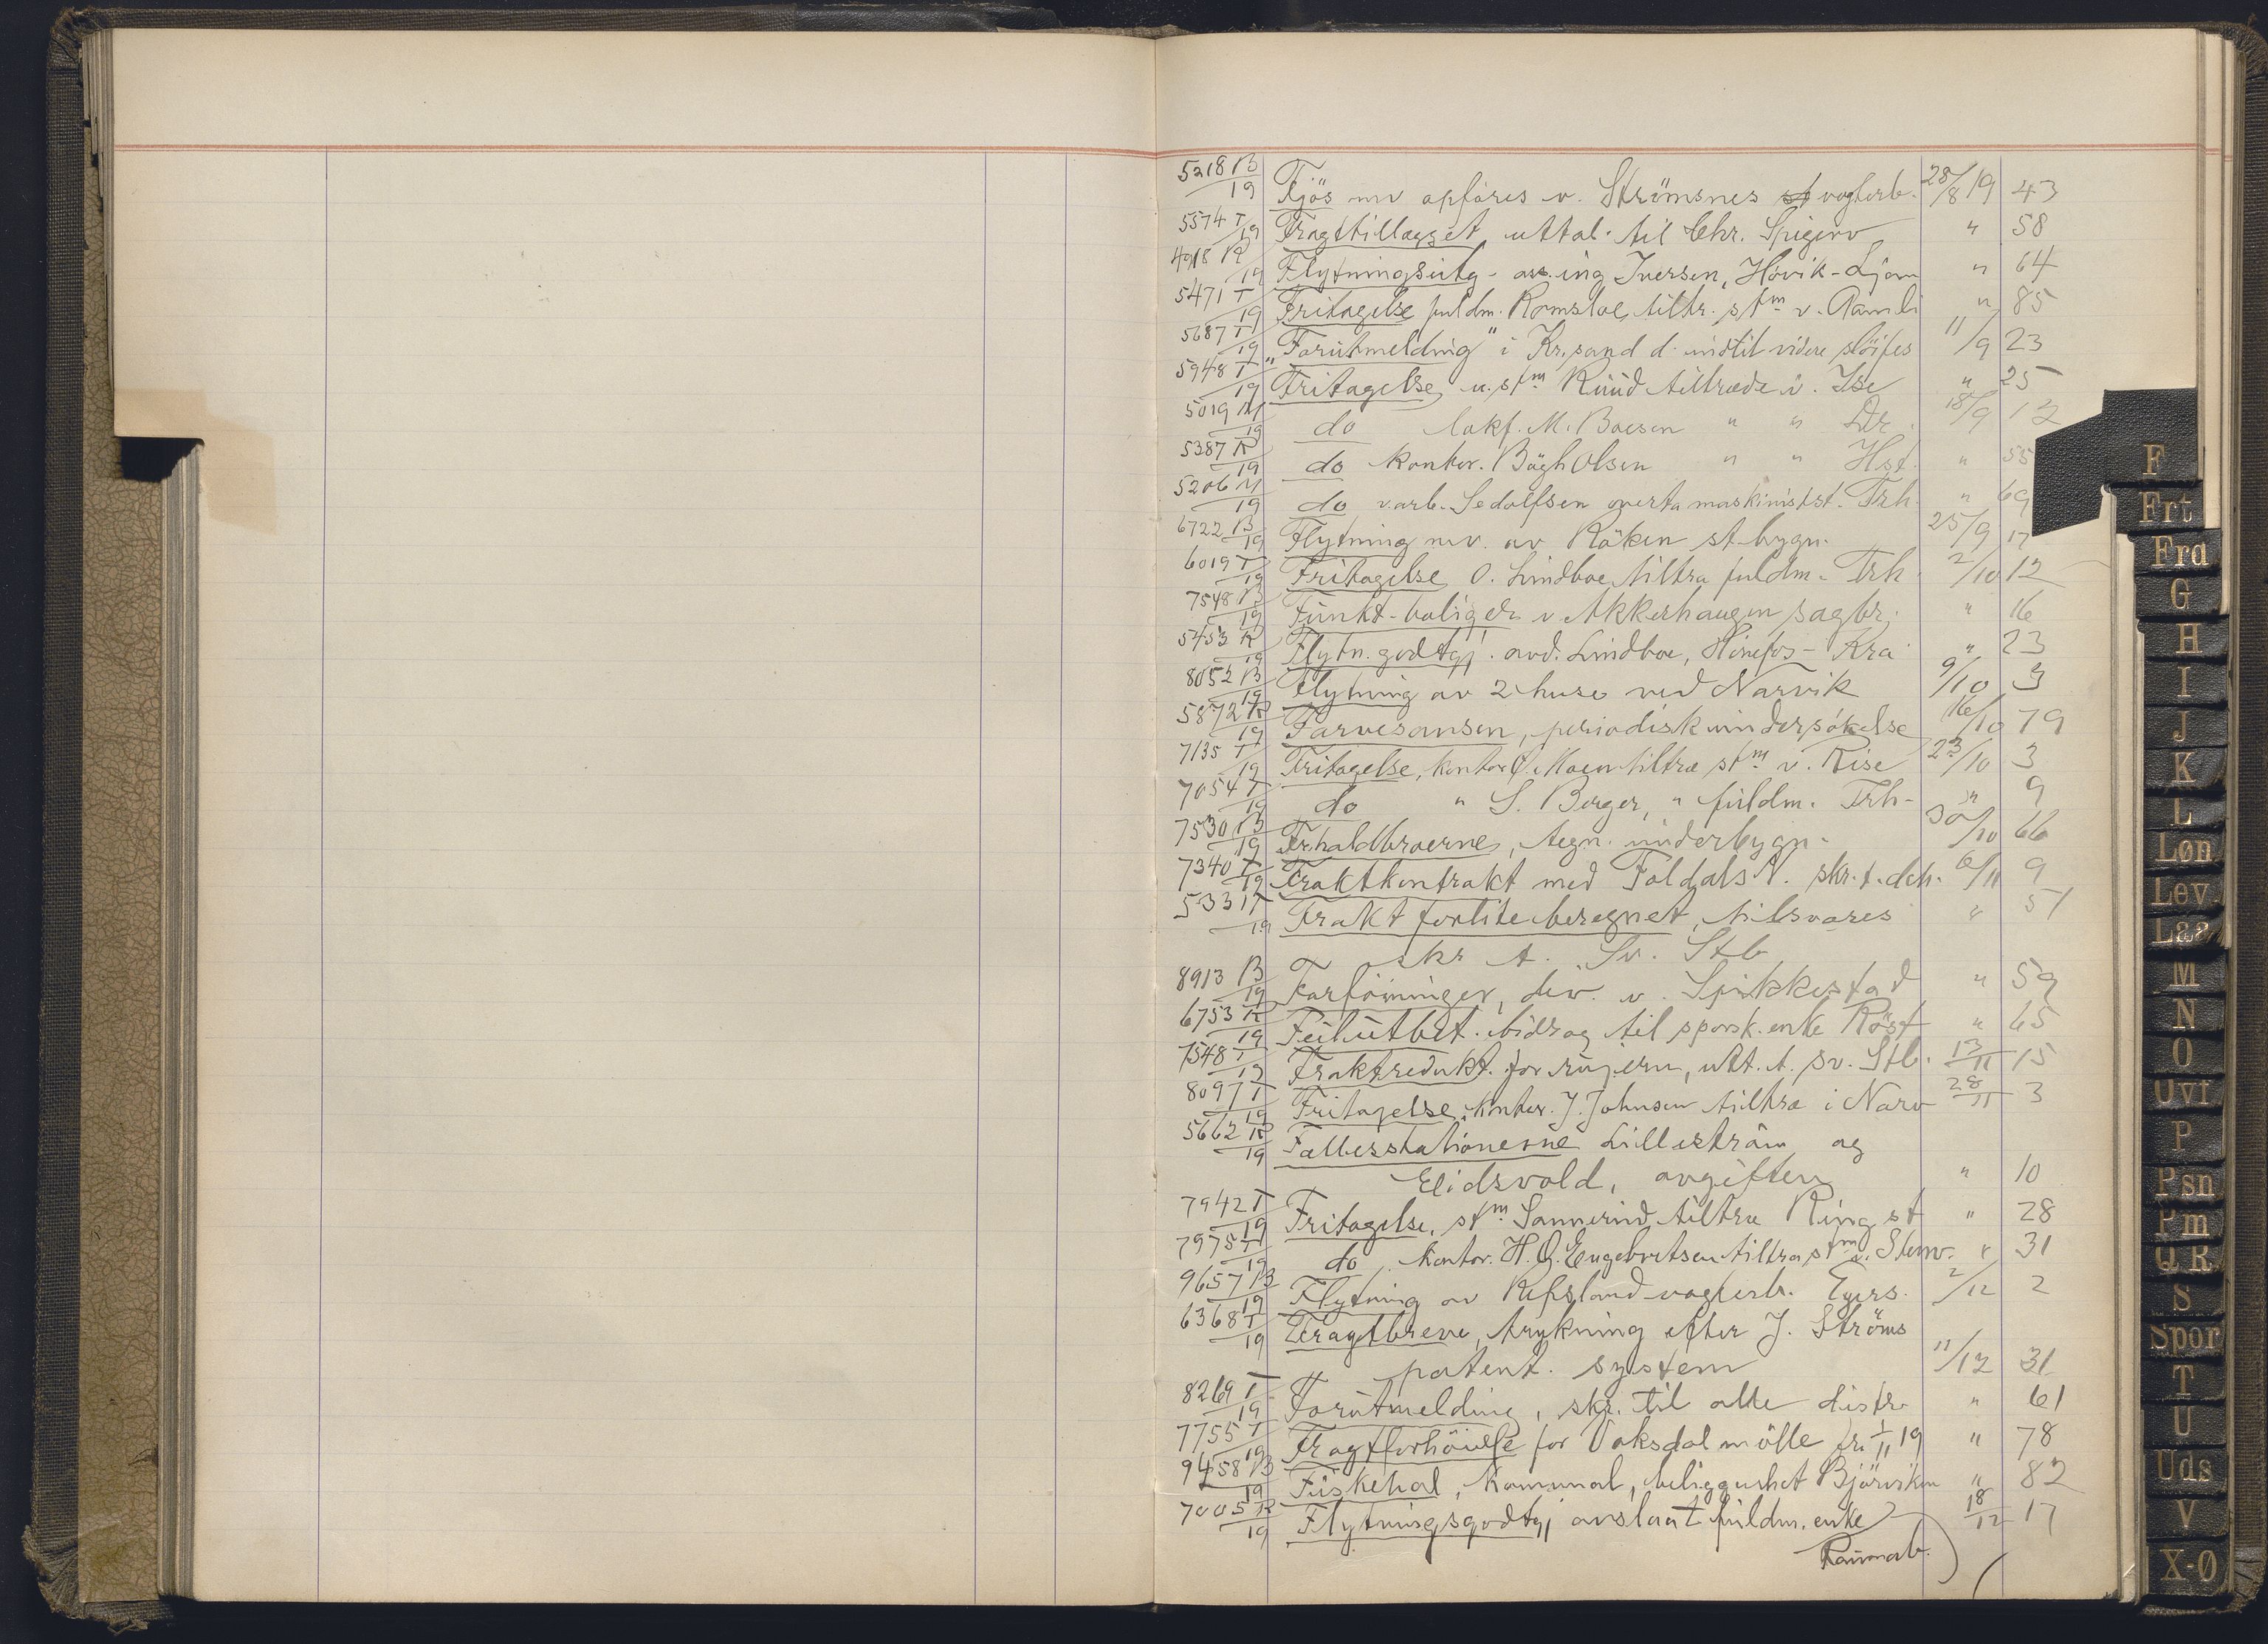 5218 B/19 Fjös mv opføres v. Strömsnes st vogterb. 28/8 19 43
5574 T/19 Fragttillægget uttal. til Chr. Spigerv " 58
4918 R/19 Flytningsutg. ass. ing Iversen, Høvik-Ljan " 64
5471 T/19 Fritagelse fuldm. Romsloe tiltr. stm v. " 85
5687 T/19 "Forutmelding" i Kr.sand d. indtil videre slöifes 11/9 23
5948 T/19 Fritagelse u. stm Ruud tiltræde v. Ise " 25
5019 M/19 do lokf. M. Boesen " " Dr. 18/9 12
5387 R/19 do kontor. Bägh Olsen " " Hst. " 55
5206 M/19 do v.arb. Sedolfsen overta maskinistst. Trh. " 69
6722 B/19 Flytning mv. av Röken st.bygn. 25/9 17
6019 T/19 Fritagelse O. Lindboe tiltra fuldm. Trh. 2/10 12
7548 B/19 Funkt-boliger v Akkerhaugen sagbr. " 16
5453 R/19 Flytn.godtgj. avd. Lindboe, Hönefos - Kra " 23
8052 B/19 Flytning av 2 huse ved Narvik 9/10 3
5872 R/19 Farvesansen, periodisk undersökelse 16/10 79
7135 T/19 Fritagelse, kontor O. Moen tiltræ stm v. Rise 23/10 3
7054 T/19 do " S. Berger, " fuldm. Trh- " 9
7530 B/19 Fr.haldbroerne, tegn. underbygn. 30/10 66
7340 T/19 Fraktkontrakt med Foldals V. skr. t. dch. 6/11 9
5331 T/19 Frakt forlite beregnet, tilsvares " 51
skr t. Sv. Stb
8913 B/19 Forføininger, div. v. Spikkestad " 59
6753 R/19 Feilutbet. bidrag til sporsk. enke Röst " 65
7548 T/19 Fraktredukt. for rujern, utt. t. sv. Stb. 13/11 15
8097 T/19 Fritagelse, kontor. J. Johnsen tiltræ i Narv 28/11 3
5662 R/19 Fællesstationerne Lilleström og
Eidsvold, avgiften " 10
7942 T/19 Fritagelse, stm. Sannerud tiltræ Ring st " 28
7975 T/19 do kontor. H. O. Engebretsen tiltra stm v. Stenv. " 31
9657 B/19 Flytning av Refsland vogterb. Egers. 2/12 2
6368 T/19 Fragtbreve, trykning efter J. Ströms
patent. system 11/12 31
8269 T/19 Forutmelding, skr. til alle distr. " 61
7755 T/19 Fragtforhöielse for Vaksdal mölle fr. 1/11 19 " 78
9458 B/19 Fiskehal, kommunal, beliggenhet Björviken " 82
7005 R/19 Flytningsgodtgj avslaat fuldm. enke 18/12 17
F
Frt
Frd
G
H
I
J
K
L
Løn
Lev
Laa
M
N
O
Ovf
P
Psn
Pm
Q R
S
Spor
T
U
Uds
V
X-Ø